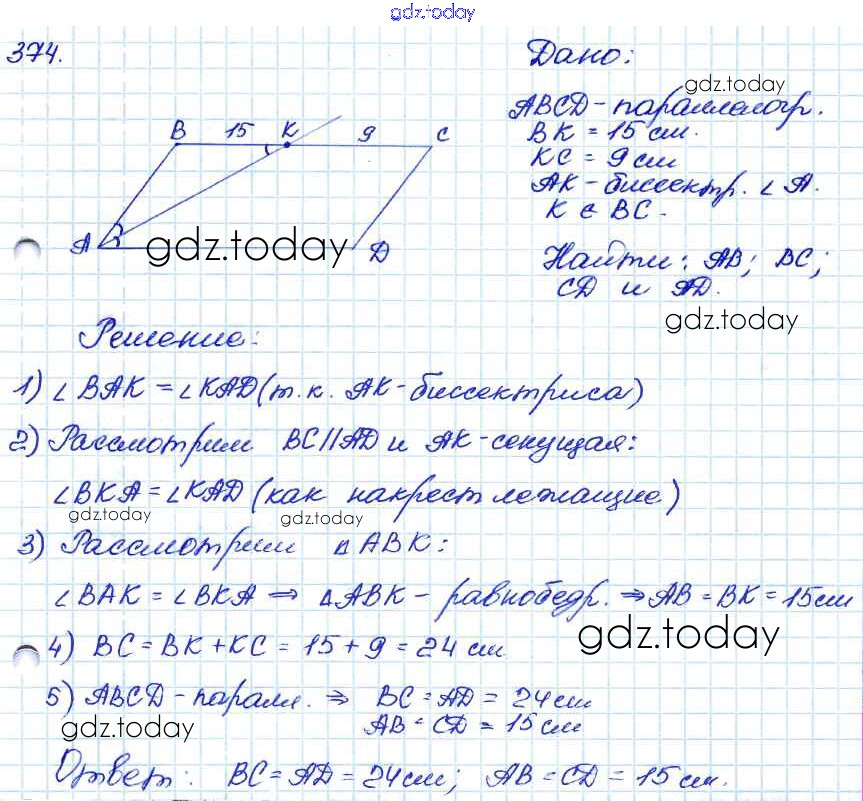 gdz.today
374.
Дано:
gdz.today
ABCD - параллелогр.
BK = 15 см.
KC = 9 см
AK - биссектр. ∠ A.
K ∈ BC.
B 15 K 9 C
A D
gdz.today
Найти: AB; BC;
CD и AD.
gdz.today
Решение:
1) ∠ BAK = ∠ KAD (т.к. AK - биссектриса)
2) Рассмотрим BC || AD и AK - секущая:
∠ BKA = ∠ KAD (как накрест лежащие)
gdz.today gdz.today
3) Рассмотрим △ ABK:
∠ BAK = ∠ BKA ⇒ △ ABK - равнобедр. ⇒ AB = BK = 15 см
gdz.today
4) BC = BK + KC = 15 + 9 = 24 см
5) ABCD - паралл. ⇒ BC = AD = 24 см
AB = CD = 15 см
gdz.today
Ответ: BC = AD = 24 см; AB = CD = 15 см.